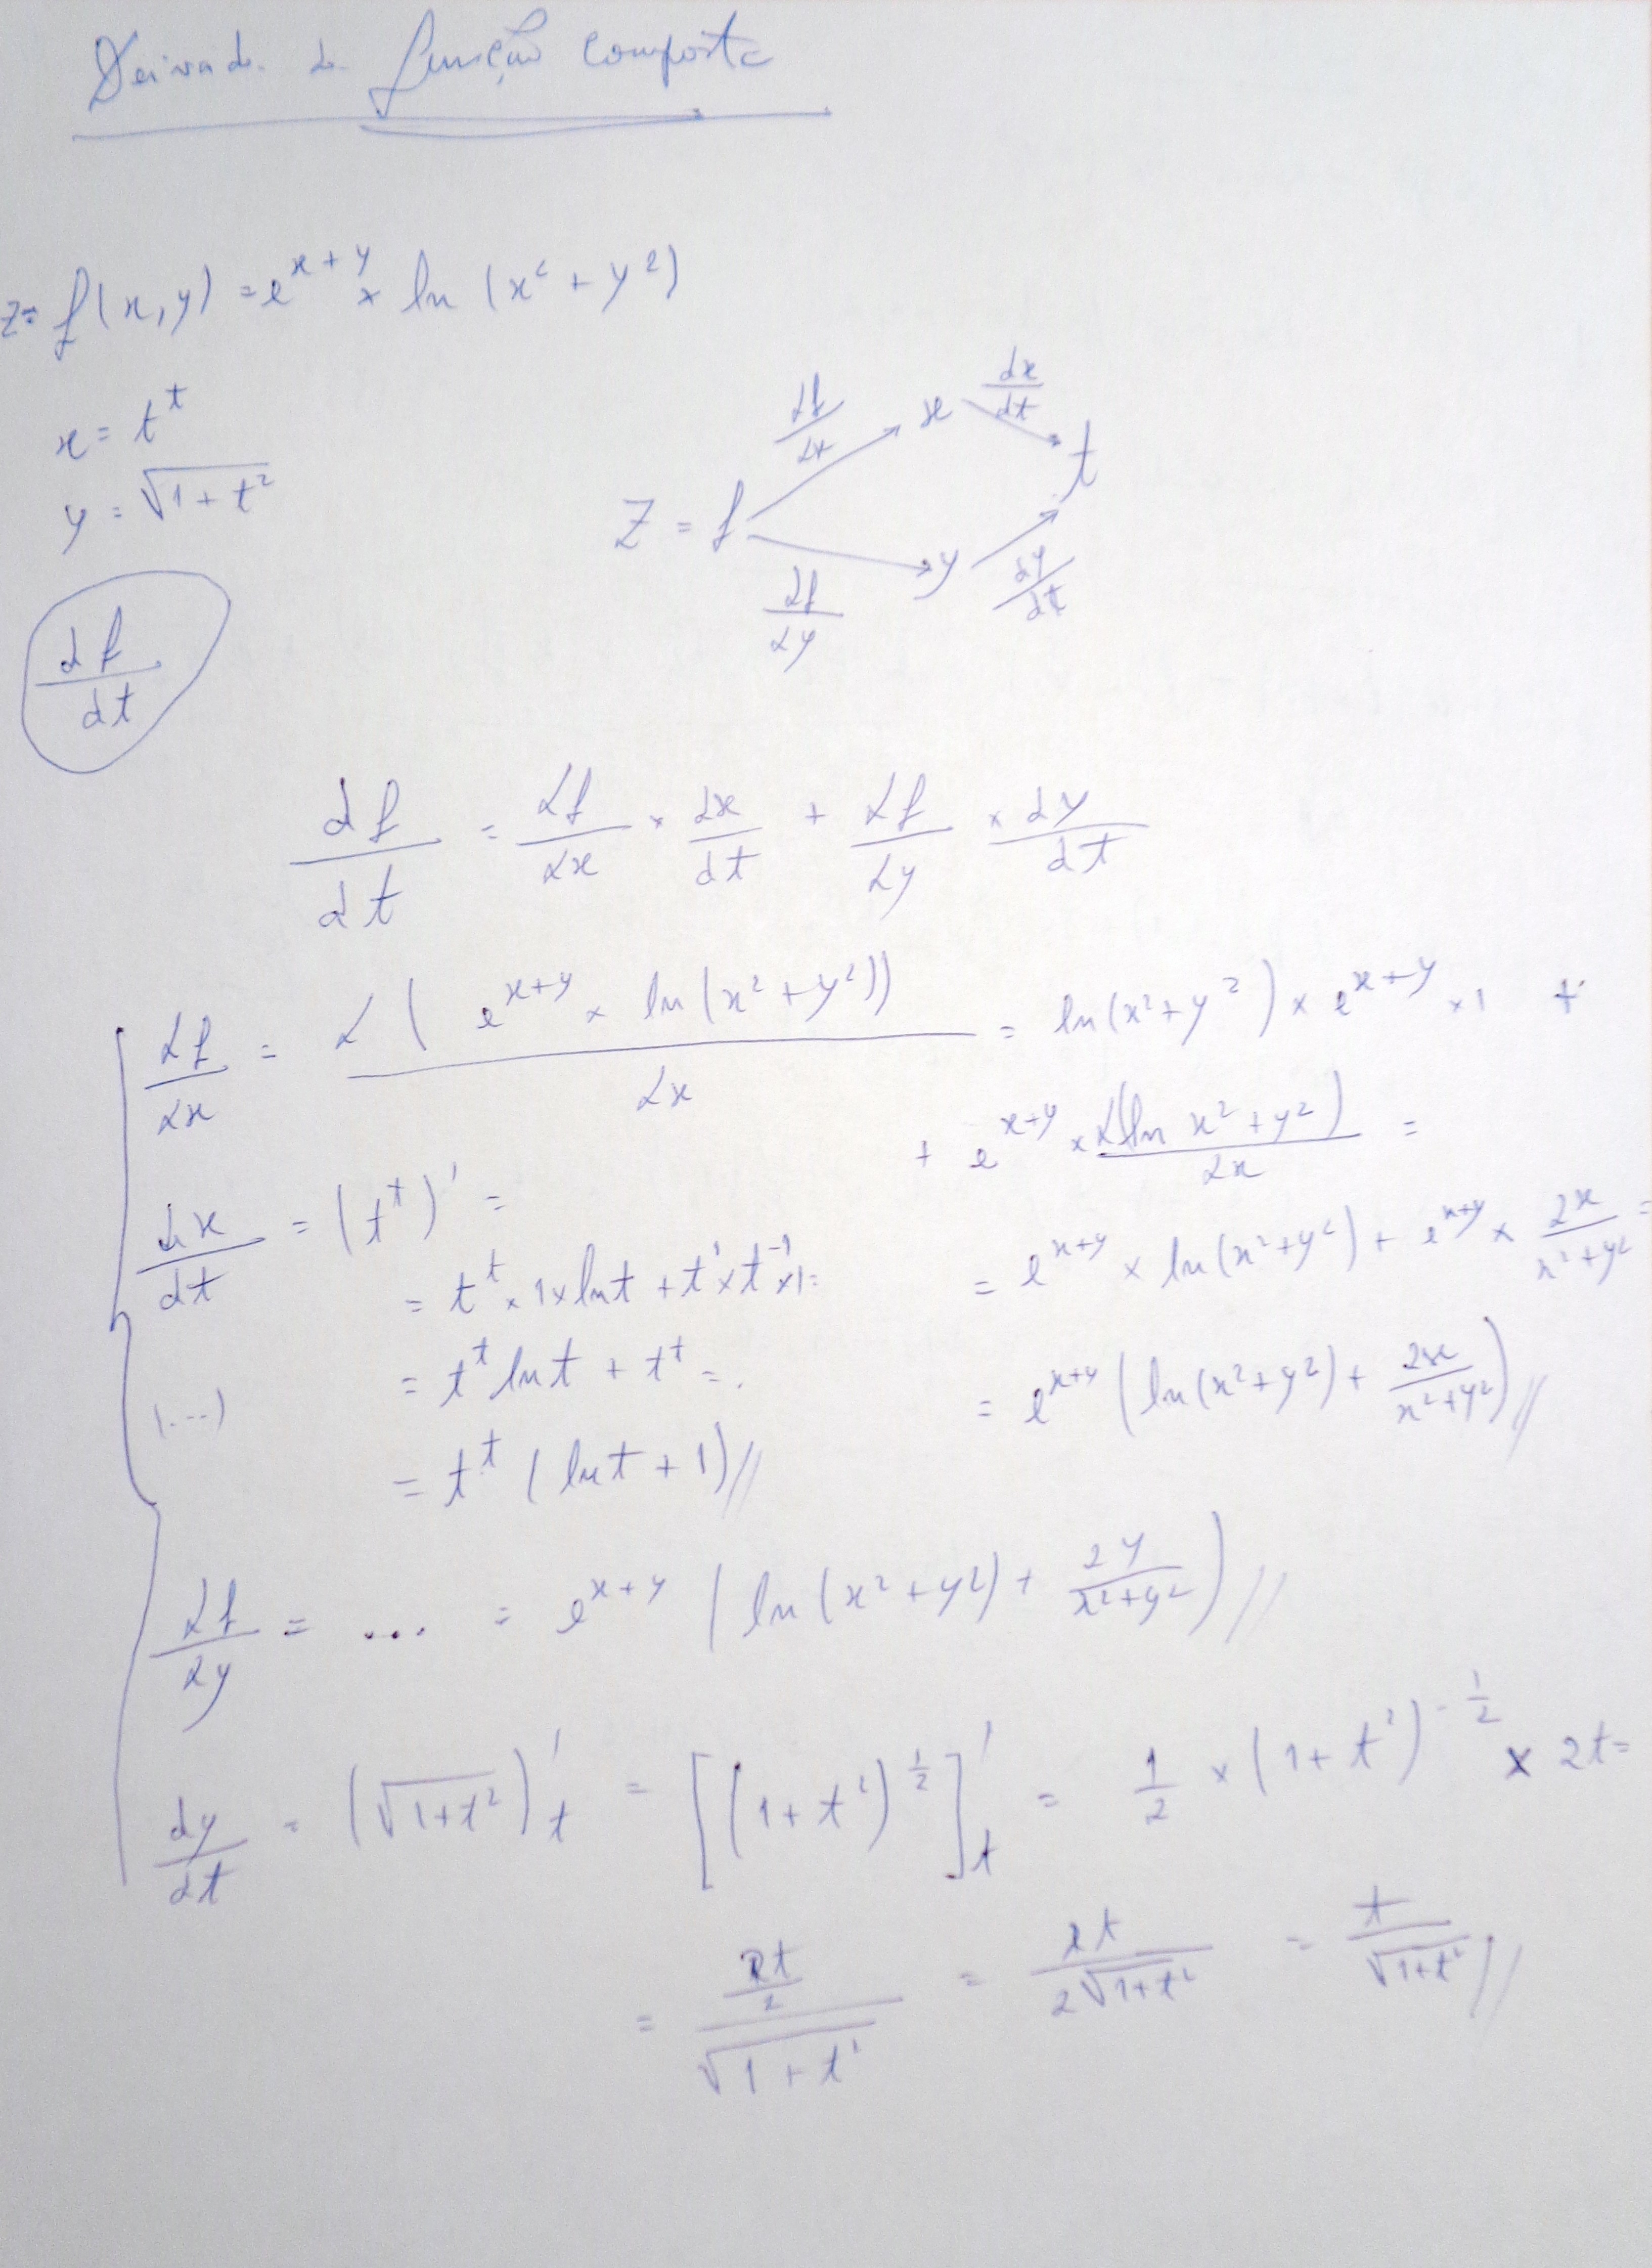 Derivada da função composta
z = f(x,y) = e^{x+y} × ln (x² + y²)
x = t^t
y = √(1 + t²)
∂f/∂x dx/dt
x
Z = f t
y
∂f/∂y dy/dt
df/dt
df/dt = ∂f/∂x × dx/dt + ∂f/∂y × dy/dt
∂f/∂x = ∂(e^{x+y} × ln(x²+y²))/∂x = ln(x²+y²) × e^{x+y} × 1 +
+ e^{x+y} × ∂(ln x²+y²)/∂x =
= e^{x+y} × ln(x²+y²) + e^{x+y} × 2x/(x²+y²) =
= e^{x+y} (ln(x²+y²) + 2x/(x²+y²)) //
dx/dt = (t^t)' =
= t^t × 1 × ln t + t^1 × t^{t-1} × 1 =
= t^t ln t + t^t =
= t^t (ln t + 1) //
(...)
∂f/∂y = ... = e^{x+y} (ln(x²+y²) + 2y/(x²+y²)) //
dy/dt = (√(1+t²))'_t = [(1+t²)^{1/2}]'_t = 1/2 × (1+t²)^{-1/2} × 2t =
= (2t/2)/√(1+t²) = 2t/(2√(1+t²)) = t/√(1+t²) //